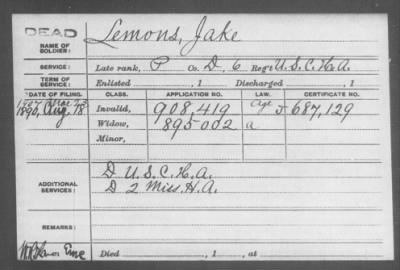 DEAD
NAME OF SOLDIER: Lemons, Jake
SERVICE: Late rank, P Co. D, 6 Reg't U.S.C.H.A.
TERM OF SERVICE: Enlisted , 1 Discharged , 1
DATE OF FILING. CLASS. APPLICATION NO. LAW. CERTIFICATE NO.
1890, Aug. 18 Invalid, 908,419 Age J 687,129
Widow, 895002 a
Minor,
ADDITIONAL SERVICES: D U.S.C.H.A.
D 2 Miss. H.A.
REMARKS:
Died , 1 , at